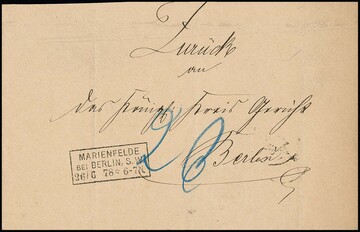 Zurück
an
das Königl. Kreis Gericht
Berlin
26
MARIENFELDE
BEI BERLIN, S.W.
26/6 78 * 6-7N